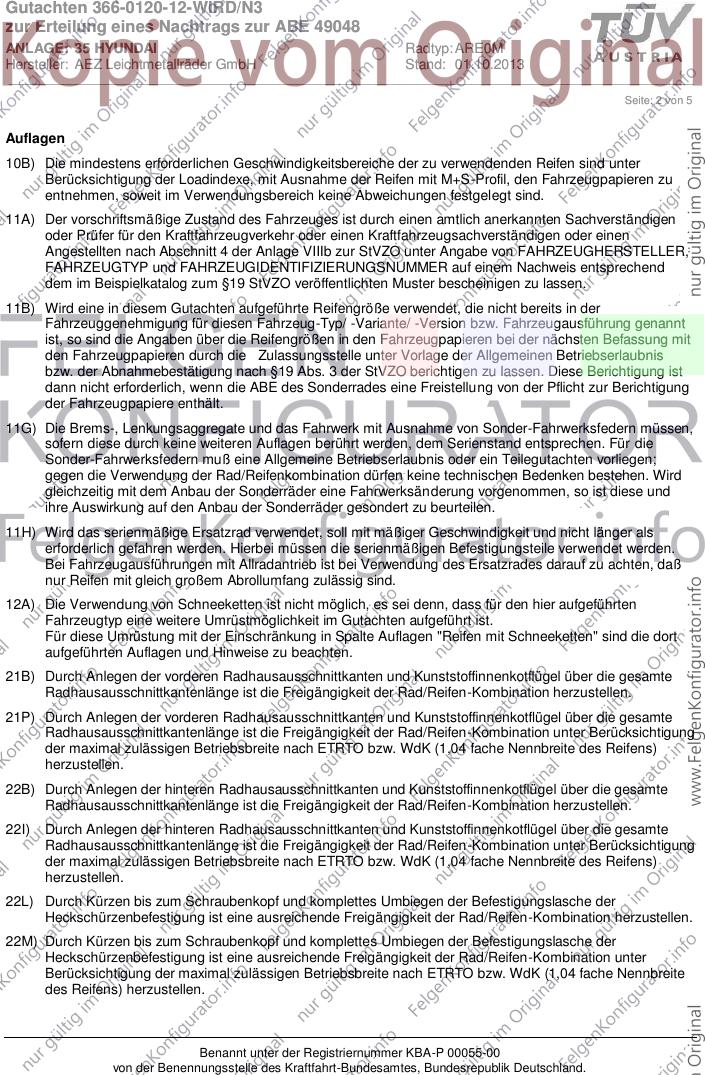 Gutachten 366-0120-12-WIRD/N3
zur Erteilung eines Nachtrags zur ABE 49048
ANLAGE: 35 HYUNDAI
Radtyp: ARE0M
Hersteller: AEZ Leichtmetallräder GmbH
Stand: 01.10.2013
TÜV
AUSTRIA
Kopie vom Original
Seite: 2 von 5
Auflagen
10B) Die mindestens erforderlichen Geschwindigkeitsbereiche der zu verwendenden Reifen sind unter
Berücksichtigung der Loadindexe, mit Ausnahme der Reifen mit M+S-Profil, den Fahrzeugpapieren zu
entnehmen, soweit im Verwendungsbereich keine Abweichungen festgelegt sind.
11A) Der vorschriftsmäßige Zustand des Fahrzeuges ist durch einen amtlich anerkannten Sachverständigen
oder Prüfer für den Kraftfahrzeugverkehr oder einen Kraftfahrzeugsachverständigen oder einen
Angestellten nach Abschnitt 4 der Anlage VIIIb zur StVZO unter Angabe von FAHRZEUGHERSTELLER,
FAHRZEUGTYP und FAHRZEUGIDENTIFIZIERUNGSNUMMER auf einem Nachweis entsprechend
dem im Beispielkatalog zum §19 StVZO veröffentlichten Muster bescheinigen zu lassen.
11B) Wird eine in diesem Gutachten aufgeführte Reifengröße verwendet, die nicht bereits in der
Fahrzeuggenehmigung für diesen Fahrzeug-Typ/ -Variante/ -Version bzw. Fahrzeugausführung genannt
ist, so sind die Angaben über die Reifengrößen in den Fahrzeugpapieren bei der nächsten Befassung mit
den Fahrzeugpapieren durch die Zulassungsstelle unter Vorlage der Allgemeinen Betriebserlaubnis
bzw. der Abnahmebestätigung nach §19 Abs. 3 der StVZO berichtigen zu lassen. Diese Berichtigung ist
dann nicht erforderlich, wenn die ABE des Sonderrades eine Freistellung von der Pflicht zur Berichtigung
der Fahrzeugpapiere enthält.
11G) Die Brems-, Lenkungsaggregate und das Fahrwerk mit Ausnahme von Sonder-Fahrwerksfedern müssen,
sofern diese durch keine weiteren Auflagen berührt werden, dem Serienstand entsprechen. Für die
Sonder-Fahrwerksfedern muß eine Allgemeine Betriebserlaubnis oder ein Teilegutachten vorliegen;
gegen die Verwendung der Rad/Reifenkombination dürfen keine technischen Bedenken bestehen. Wird
gleichzeitig mit dem Anbau der Sonderräder eine Fahrwerksänderung vorgenommen, so ist diese und
ihre Auswirkung auf den Anbau der Sonderräder gesondert zu beurteilen.
11H) Wird das serienmäßige Ersatzrad verwendet, soll mit mäßiger Geschwindigkeit und nicht länger als
erforderlich gefahren werden. Hierbei müssen die serienmäßigen Befestigungsteile verwendet werden.
Bei Fahrzeugausführungen mit Allradantrieb ist bei Verwendung des Ersatzrades darauf zu achten, daß
nur Reifen mit gleich großem Abrollumfang zulässig sind.
12A) Die Verwendung von Schneeketten ist nicht möglich, es sei denn, dass für den hier aufgeführten
Fahrzeugtyp eine weitere Umrüstmöglichkeit im Gutachten aufgeführt ist.
Für diese Umrüstung mit der Einschränkung in Spalte Auflagen "Reifen mit Schneeketten" sind die dort
aufgeführten Auflagen und Hinweise zu beachten.
21B) Durch Anlegen der vorderen Radhausausschnittkanten und Kunststoffinnenkotflügel über die gesamte
Radhausausschnittkantenlänge ist die Freigängigkeit der Rad/Reifen-Kombination herzustellen.
21P) Durch Anlegen der vorderen Radhausausschnittkanten und Kunststoffinnenkotflügel über die gesamte
Radhausausschnittkantenlänge ist die Freigängigkeit der Rad/Reifen-Kombination unter Berücksichtigung
der maximal zulässigen Betriebsbreite nach ETRTO bzw. WdK (1,04 fache Nennbreite des Reifens)
herzustellen.
22B) Durch Anlegen der hinteren Radhausausschnittkanten und Kunststoffinnenkotflügel über die gesamte
Radhausausschnittkantenlänge ist die Freigängigkeit der Rad/Reifen-Kombination herzustellen.
22I) Durch Anlegen der hinteren Radhausausschnittkanten und Kunststoffinnenkotflügel über die gesamte
Radhausausschnittkantenlänge ist die Freigängigkeit der Rad/Reifen-Kombination unter Berücksichtigung
der maximal zulässigen Betriebsbreite nach ETRTO bzw. WdK (1,04 fache Nennbreite des Reifens)
herzustellen.
22L) Durch Kürzen bis zum Schraubenkopf und komplettes Umbiegen der Befestigungslasche der
Heckschürzenbefestigung ist eine ausreichende Freigängigkeit der Rad/Reifen-Kombination herzustellen.
22M) Durch Kürzen bis zum Schraubenkopf und komplettes Umbiegen der Befestigungslasche der
Heckschürzenbefestigung ist eine ausreichende Freigängigkeit der Rad/Reifen-Kombination unter
Berücksichtigung der maximal zulässigen Betriebsbreite nach ETRTO bzw. WdK (1,04 fache Nennbreite
des Reifens) herzustellen.
Benannt unter der Registriernummer KBA-P 00055-00
von der Benennungsstelle des Kraftfahrt-Bundesamtes, Bundesrepublik Deutschland.
FELGEN
KONFIGURATOR
FelgenKonfigurator.info
nur gültig im Original
www.FelgenKonfigurator.info